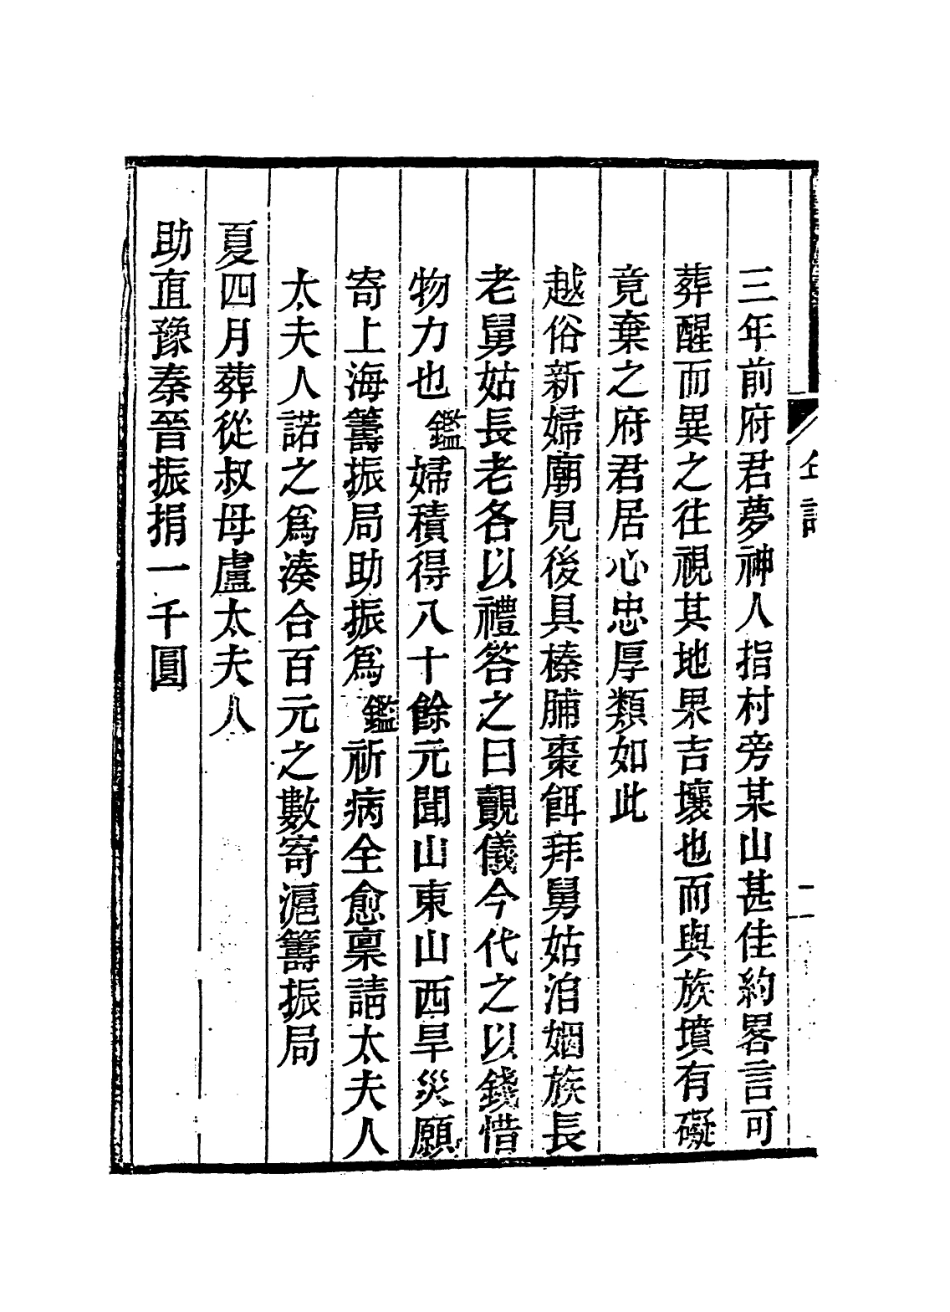 三年前府君夢神人指村旁某山甚佳約畧言可
葬醒而異之往視其地果吉壤也而與族墳有礙
竟棄之府君居心忠厚類如此
越俗新婦廟見後具榛脯棗餌拜舅姑洎姻族長
老舅姑長老各以禮答之曰覿儀今代之以錢惜
物力也鑑婦積得八十餘元聞山東山西旱災願
寄上海籌振局助振爲鑑祈病全愈稟請太夫人
太夫人諾之爲湊合百元之數寄滬籌振局
夏四月葬從叔母盧太夫人
助直豫秦晉振捐一千圓